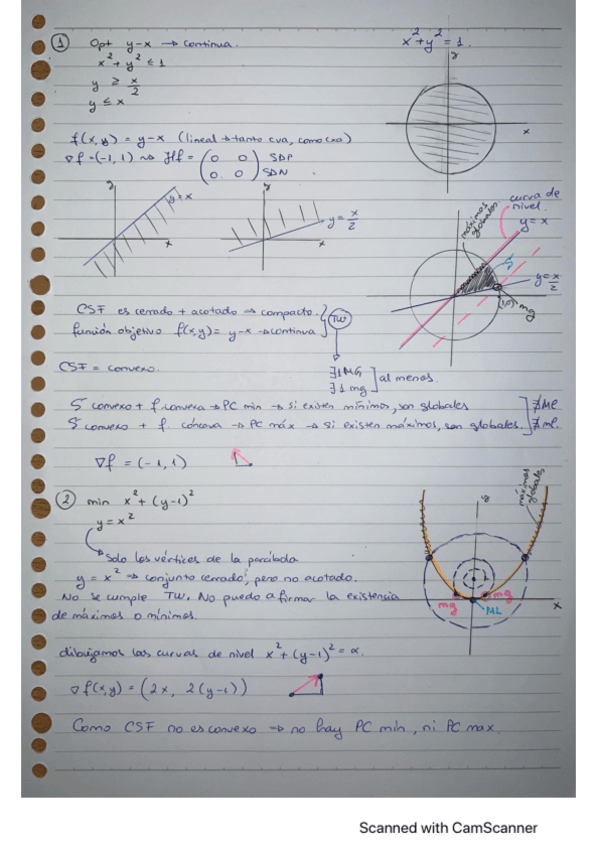 ① Opt y-x → continua.
x² + y² ≤ 1
y ≥ x/2
y ≤ x
x² + y² = 1.
y
x
f(x,y) = y-x (lineal → tanto cva, como cxa)
∇f = (-1, 1) ⇝ Hf = (0 0 / 0 0) SDP SDN
y
y = x
x
y
y = x/2
x
curva de nivel.
máximos globales
y = x
S
y = x/2
mg
CSF es cerrado + acotado → compacto.
función objetivo f(x,y) = y-x → continua
TW
∃1MG
∃1mg
al menos.
CSF = convexo.
S convexo + f convexa → PC min → si existen mínimos, son globales
S convexo + f. cóncava → PC máx → si existen máximos, son globales.
∄ML
∄mL
∇f = (-1, 1)
② min x² + (y-1)²
y = x²
Solo los vértices de la parábola
y = x² → conjunto cerrado, pero no acotado.
No se cumple TW. No puedo afirmar la existencia
de máximos o mínimos.
máximos globales
mg
mg
ML
x
dibujamos las curvas de nivel x² + (y-1)² = α.
∇f(x,y) = (2x, 2(y-1))
Como CSF no es convexo → no hay PC min, ni PC max.
Scanned with CamScanner